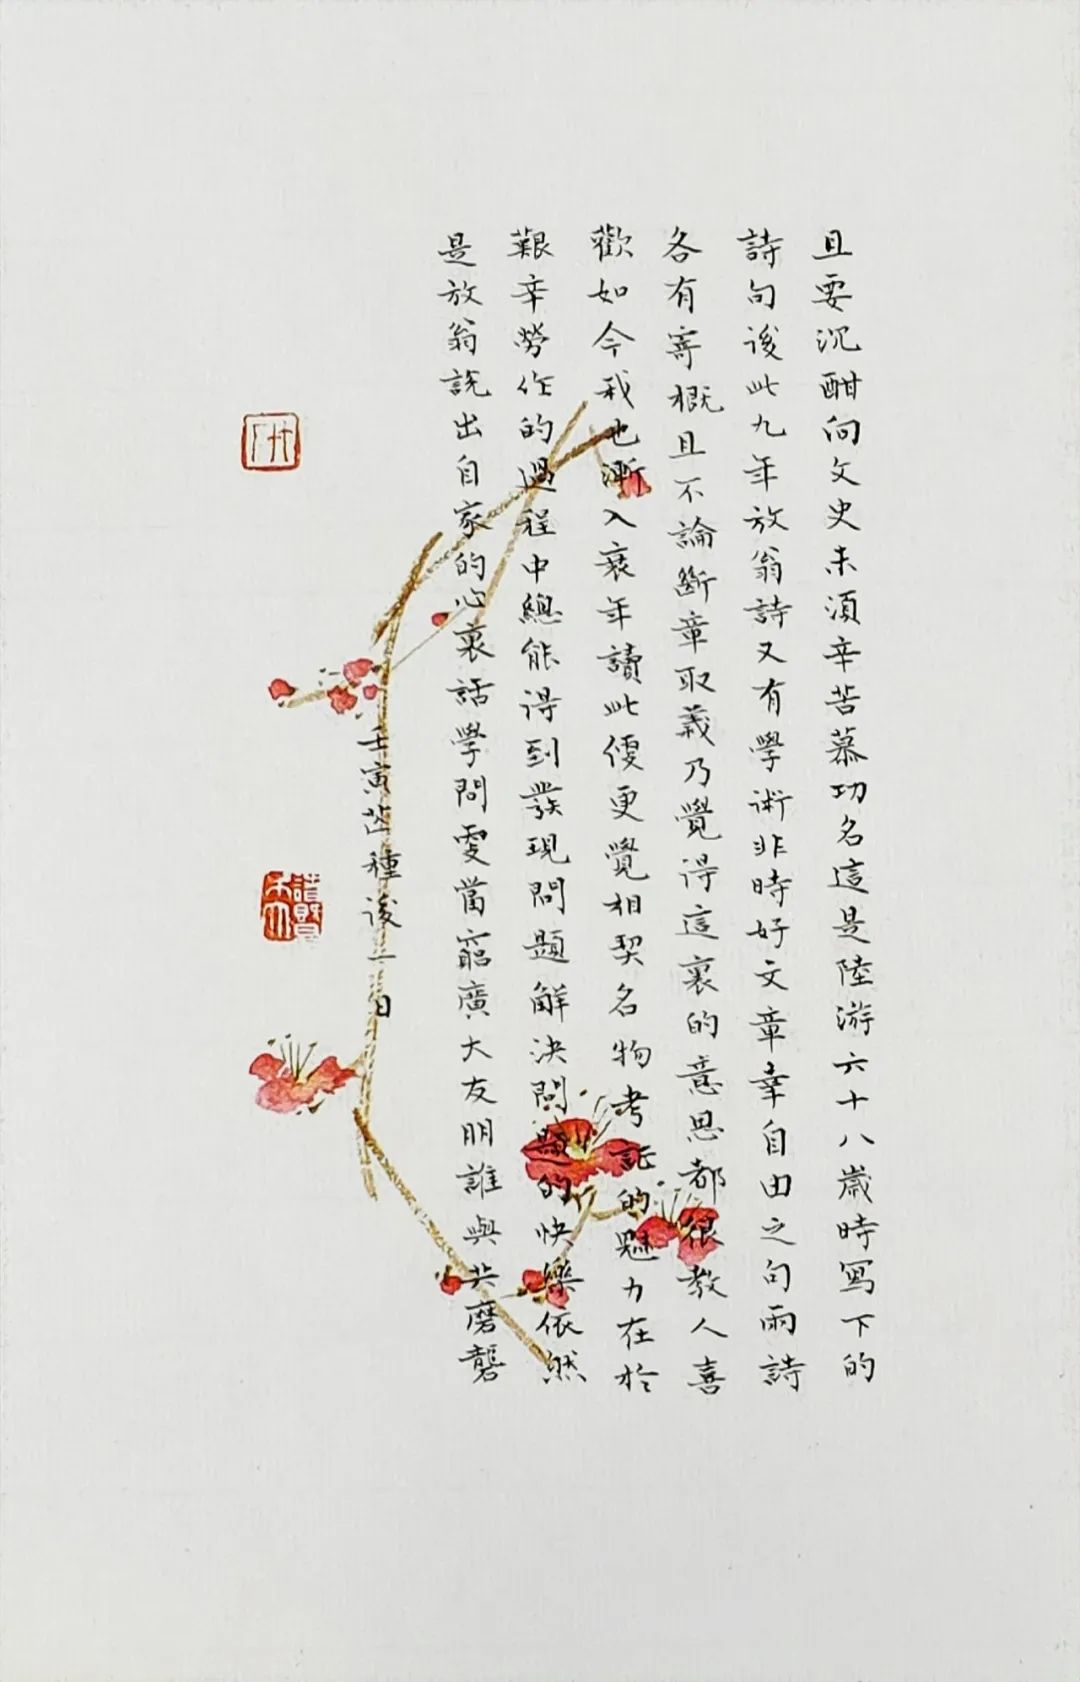 且要沉酣向文史未須辛苦慕功名這是陸游六十八歲時寫下的
詩句後此九年放翁詩又有學術非時好文章幸自由之句兩詩
各有寄概且不論斷章取義乃覺得這裏的意思都很教人喜
歡如今我也漸入衰年讀此便更覺相契名物考證的魅力在於
艱辛勞作的過程中總能得到發現問題解決問題的快樂依然
是放翁説出自家的心裏話學問更當窮廣大友朋誰與共磨礱
壬寅芒種後一日